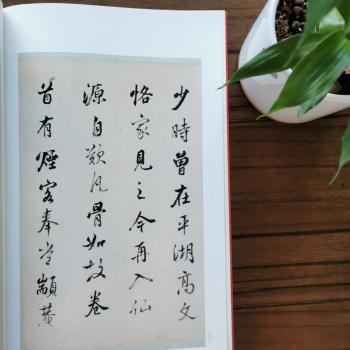 少時曾在平湖高文
恪家見之今再入仙
源自歎凡骨如故卷
首有煙客奉常顓菴